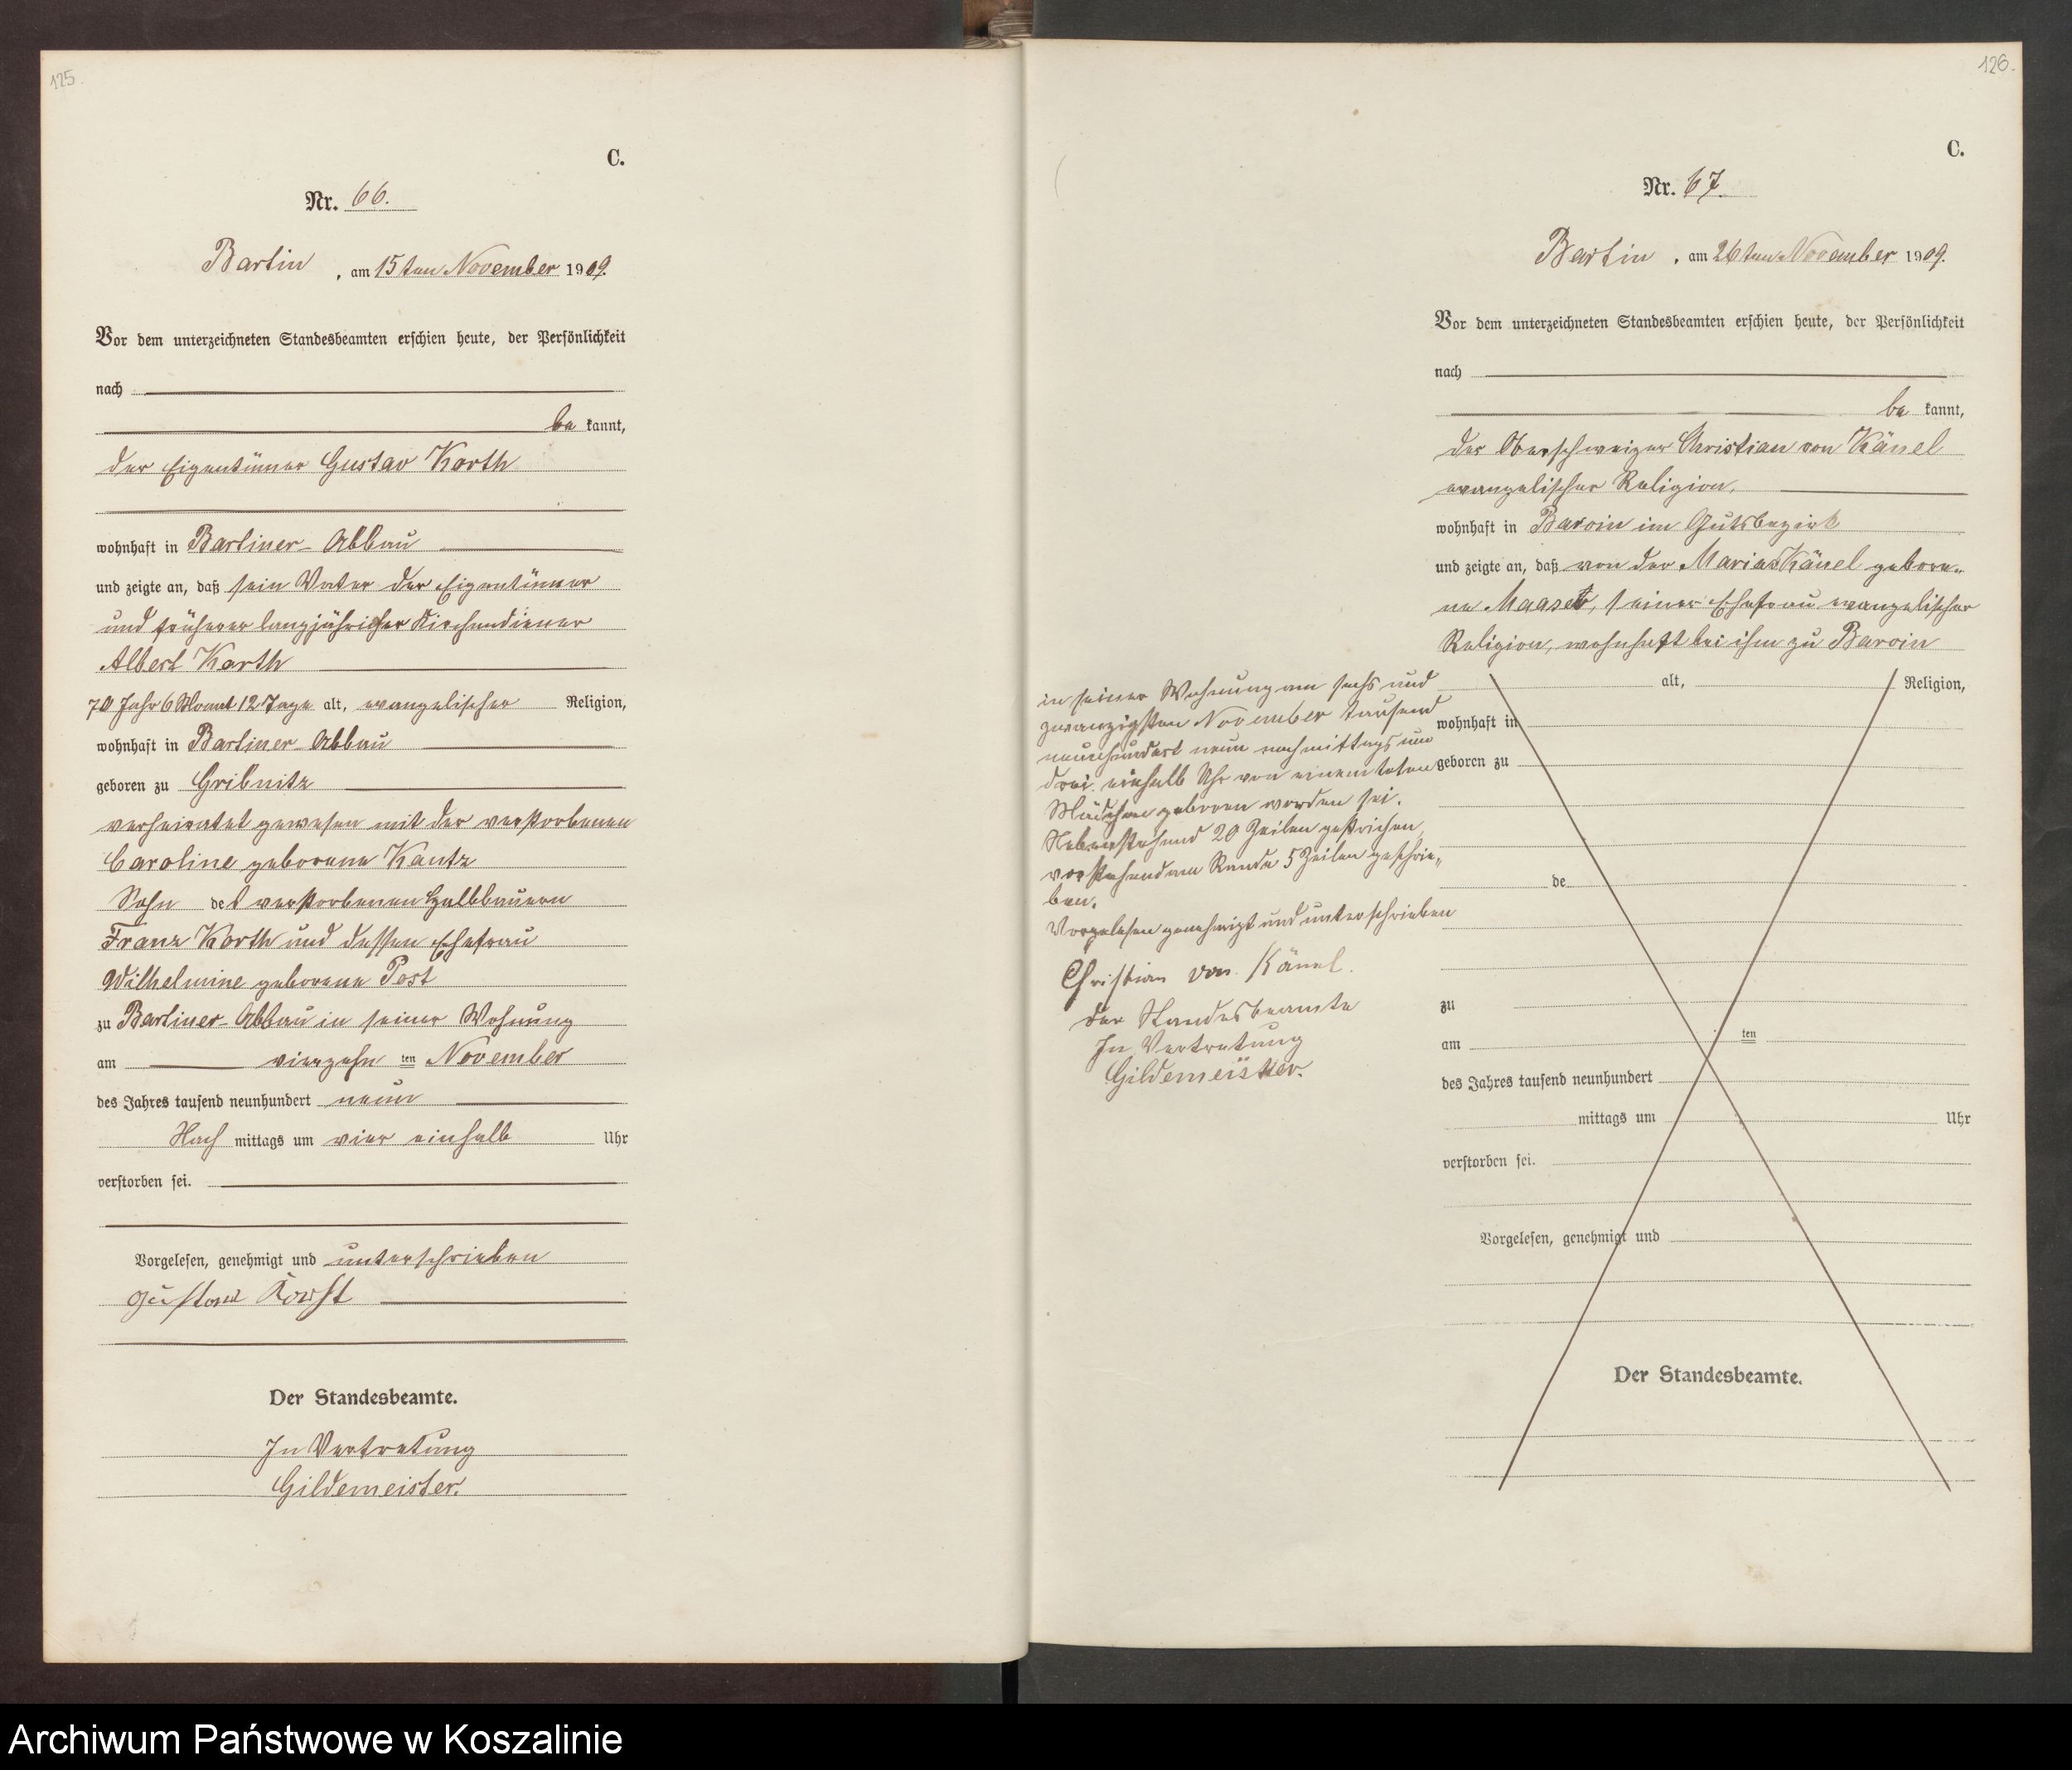 125.
C.
Nr. 66.
Bartin, am 15ten November 1909.
Vor dem unterzeichneten Standesbeamten erschien heute, der Persönlichkeit
nach
be kannt,
der Eigentümer Gustav Korth
wohnhaft in Bartiner-Abbau
und zeigte an, daß sein Vater der Eigentümer
und früherer langjähriger Kirchendiener
Albert Korth
70 Jahr 6 Monat 12 Tage alt, evangelischer Religion,
wohnhaft in Bartiner-Abbau
geboren zu Gribnitz
verheiratet gewesen mit der verstorbenen
Caroline geborene Kautz
Sohn des verstorbenen Halbbauern
Franz Korth und dessen Ehefrau
Wilhelmine geborene Post
zu Bartiner-Abbau in seiner Wohnung
am vierzehn ten November
des Jahres tausend neunhundert neun
Nach mittags um vier einhalb Uhr
verstorben sei.
Vorgelesen, genehmigt und unterschrieben
Gustav Korth
Der Standesbeamte.
In Vertretung
Gildemeister.
126.
C.
Nr. 67.
Bartin, am 26ten November 1909.
Vor dem unterzeichneten Standesbeamten erschien heute, der Persönlichkeit
nach
be kannt,
der Oberschweizer Christian von Känel
evangelischer Religion,
wohnhaft in Barvin im Gutsbezirk
und zeigte an, daß von der Maria Känel gebore-
ne Maase, seiner Ehefrau evangelischer
Religion, wohnhaft bei ihm zu Barvin
alt, Religion,
wohnhaft in
geboren zu
de
zu
am ten
des Jahres tausend neunhundert
mittags um Uhr
verstorben sei.
Vorgelesen, genehmigt und
Der Standesbeamte.
in seiner Wohnung am sechs und
zwanzigsten November tausend
neunhundert neun nachmittags um
drei einhalb Uhr von einem toten
Mädchen geboren worden sei.
Nebenstehend 20 Zeilen gestrichen,
vorstehend am Rande 5 Zeilen geschrie-
ben.
Vorgelesen genehmigt und unterschrieben
Christian von Känel.
Der Standesbeamte
In Vertretung
Gildemeister.
Archiwum Państwowe w Koszalinie